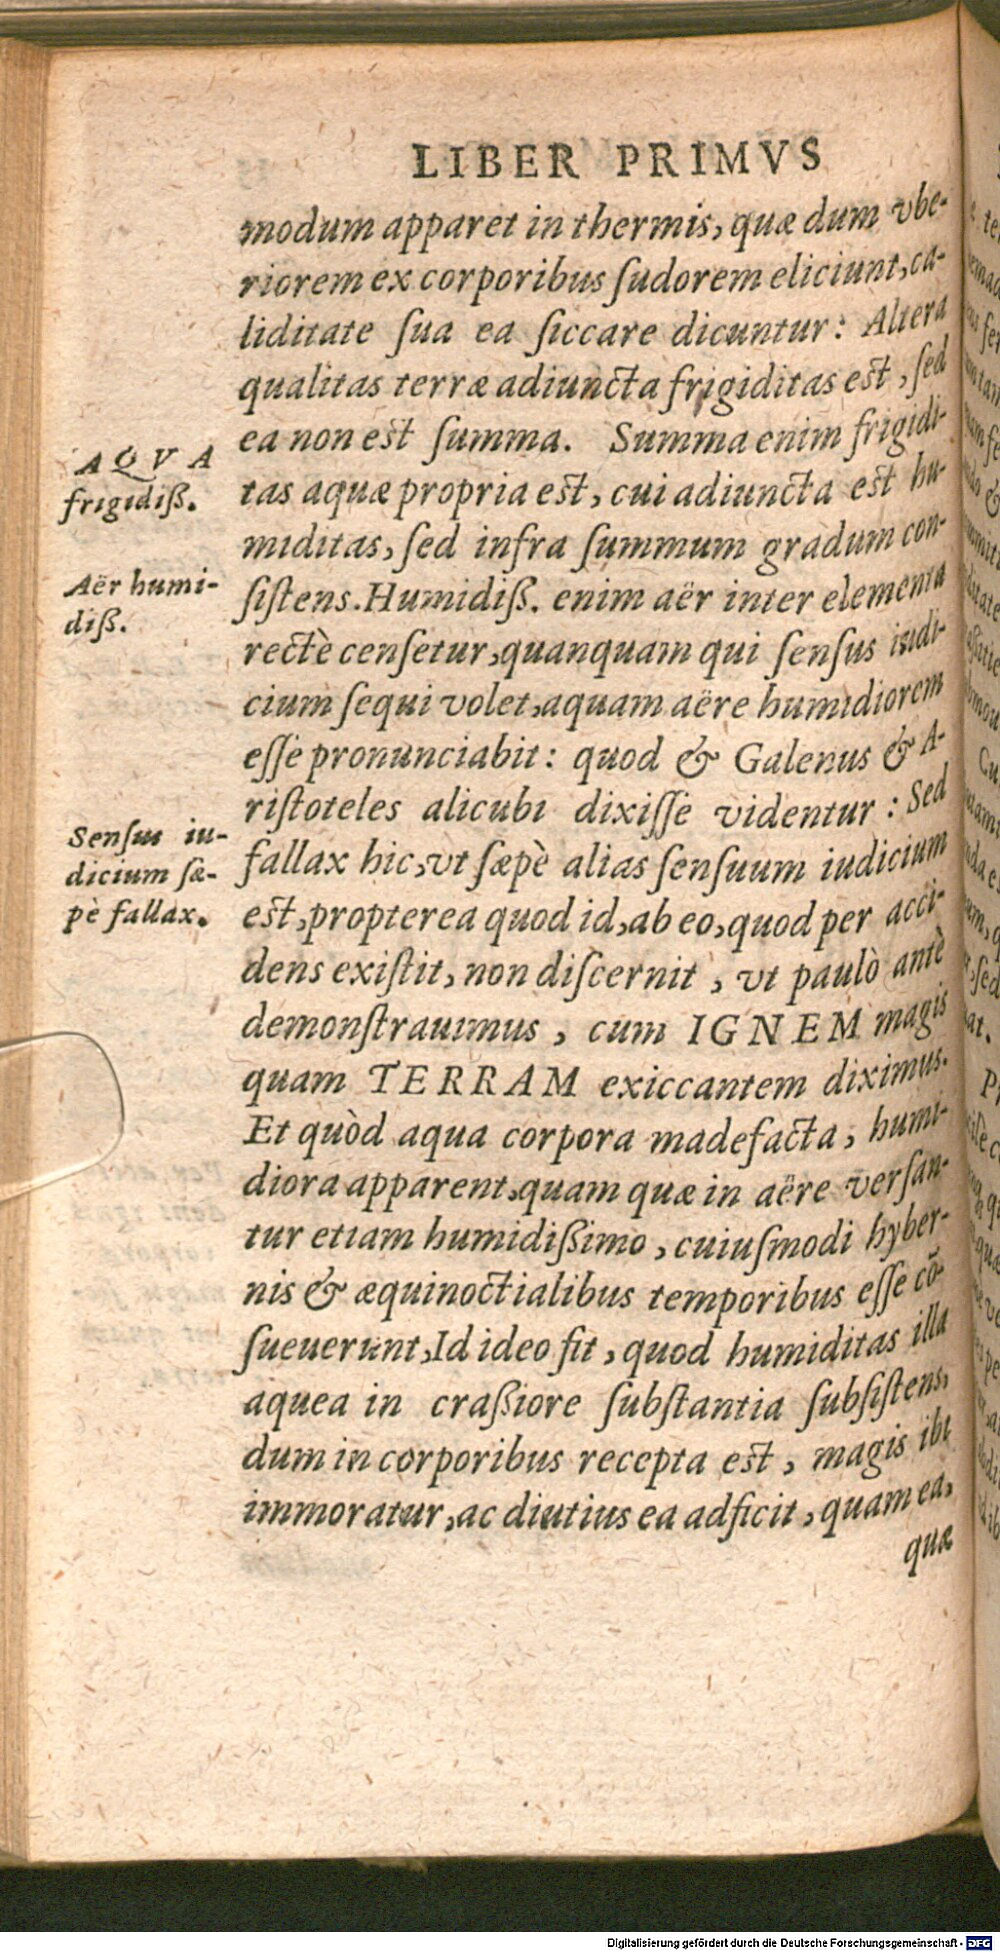 LIBER PRIMVS
modum apparet in thermis, quæ dum vbe-
riorem ex corporibus ſudorem eliciunt, ca-
liditate ſua ea ſiccare dicuntur: Altera
qualitas terræ adiuncta frigiditas est, ſed
ea non est ſumma. Summa enim frigidi-
tas aquæ propria est, cui adiuncta est hu-
miditas, ſed infra ſummum gradum con-
ſiſtens. Humidiß. enim aër inter elementa
rectè cenſetur, quanquam qui ſenſus iudi-
cium ſequi volet, aquam aëre humidiorem
eſſe pronunciabit: quod & Galenus & A-
riſtoteles alicubi dixiſſe videntur: Sed
fallax hic, vt ſæpè alias ſenſuum iudicium
est, propterea quod id, ab eo, quod per acci-
dens exiſtit, non diſcernit, vt paulò antè
demonſtrauimus, cum IGNEM magis
quam TERRAM exiccantem diximus.
Et quòd aqua corpora madefacta, humi-
diora apparent, quam quæ in aëre verſan-
tur etiam humidißimo, cuiuſmodi hyber-
nis & æquinoctialibus temporibus eſſe cō-
ſueuerunt, Id ideo fit, quod humiditas illa
aquea in craßiore ſubſtantia ſubſiſtens,
dum in corporibus recepta est, magis ibi
immoratur, ac diutius ea adficit, quam ea,
quæ
AQVA
frigidiß.
Aër humi-
diß.
Senſuū iu-
dicium ſæ-
pè fallax.
Digitalisierung gefördert durch die Deutsche Forschungsgemeinschaft - DFG